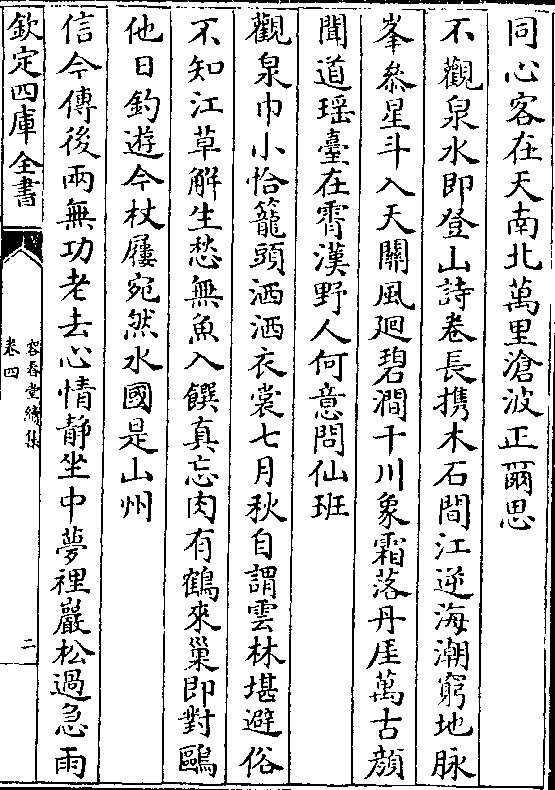 同心客在天南北萬里滄波正爾思
不觀泉水即登山詩卷長携木石間江逆海潮窮地脉
峯叅星斗入天關風廻碧澗千川象霜落丹厓萬古顔
聞道瑶臺在霄漢野人何意問仙班
觀泉巾小恰籠頭洒洒衣裳七月秋自謂雲林堪避俗
不知江草解生愁無魚入饌真忘肉有鶴來巢即對鷗
他日釣遊今杖屨宛然水國是山州
信今傳後兩無功老去心情静坐中夢裡巖松過急雨
欽定四庫全書
容春堂續集
卷四
二